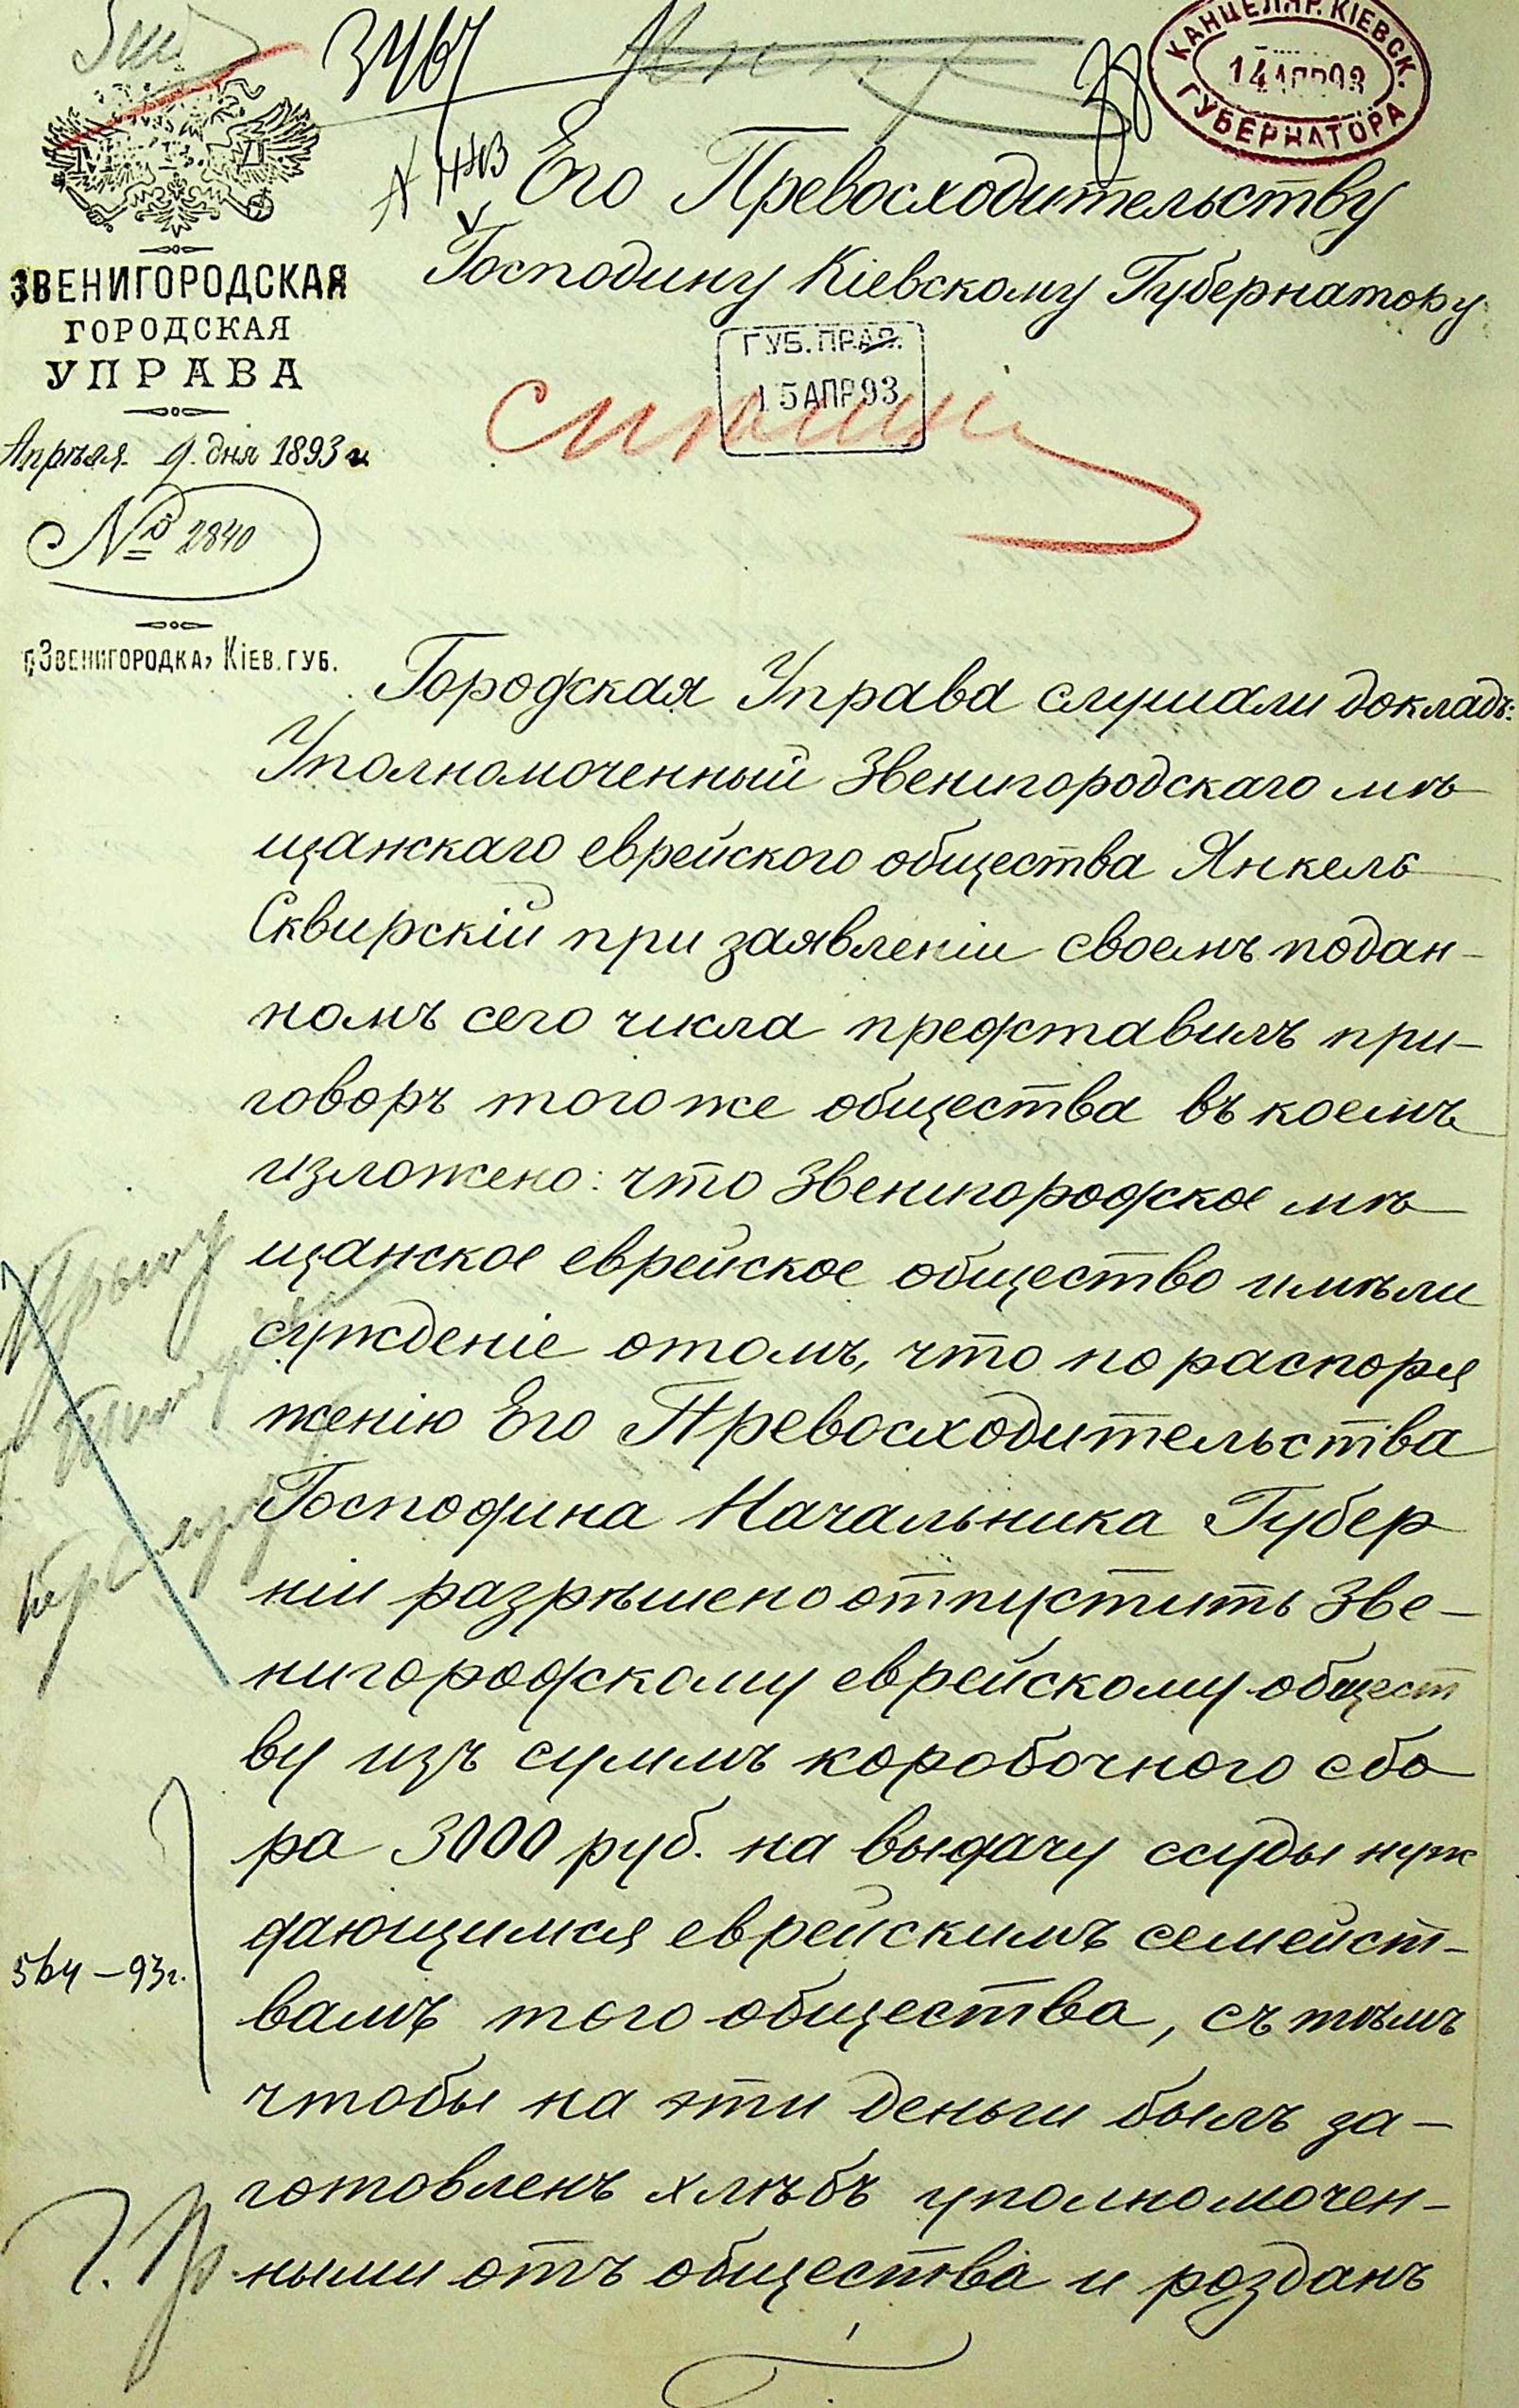 3467
38
КАНЦЕЛЯР. КІЕВСК.
14 АПР 93
ГУБЕРНАТОРА
М В Д
ЗВЕНИГОРОДСКАЯ
ГОРОДСКАЯ
УПРАВА
Апрѣля 9 дня 1893 г.
№ 2840
г. Звенигородка, Кіев. губ.
Его Превосходительству
Господину Кіевскому Губернатору
ГУБ. ПРАВ.
15 АПР 93
Городская Управа слушали докладъ:
Уполномоченный Звенигородскаго мѣ
щанскаго еврейского общества Янкель
Сквирскій при заявленіи своемъ подан-
номъ сего числа представилъ при-
говоръ того же общества въ коемъ
изложено: что Звенигородское мѣ
щанское еврейское общество имѣли
сужденіе о томъ, что по распоря
женію Его Превосходительства
Господина Начальника Губер
ніи разрѣшено отпустить Зве-
нигородскому еврейскому общест
ву изъ суммъ коробочного сбо
ра 3000 руб. на выдачу ссуды нуж
дающимся еврейскимъ семейст-
вамъ того общества, съ тѣмъ
чтобы на эти деньги былъ за-
готовленъ хлѣбъ уполномочен-
ными отъ общества и розданъ
564 – 93 г.